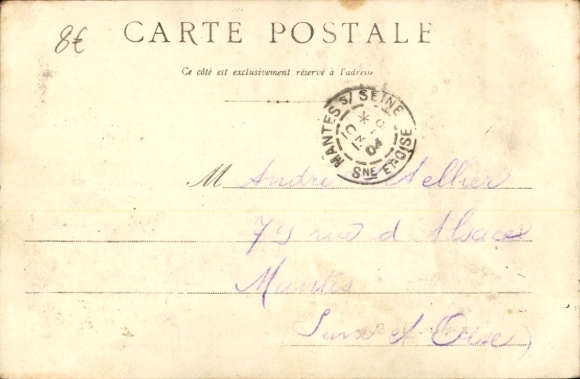 8€
CARTE POSTALE
Ce côté est exclusivement réservé à l'adresse
MANTES S/ SEINE
10
04
SNE ET-OISE
M André
rue d'Alsace
Mantes
Seine et Oise